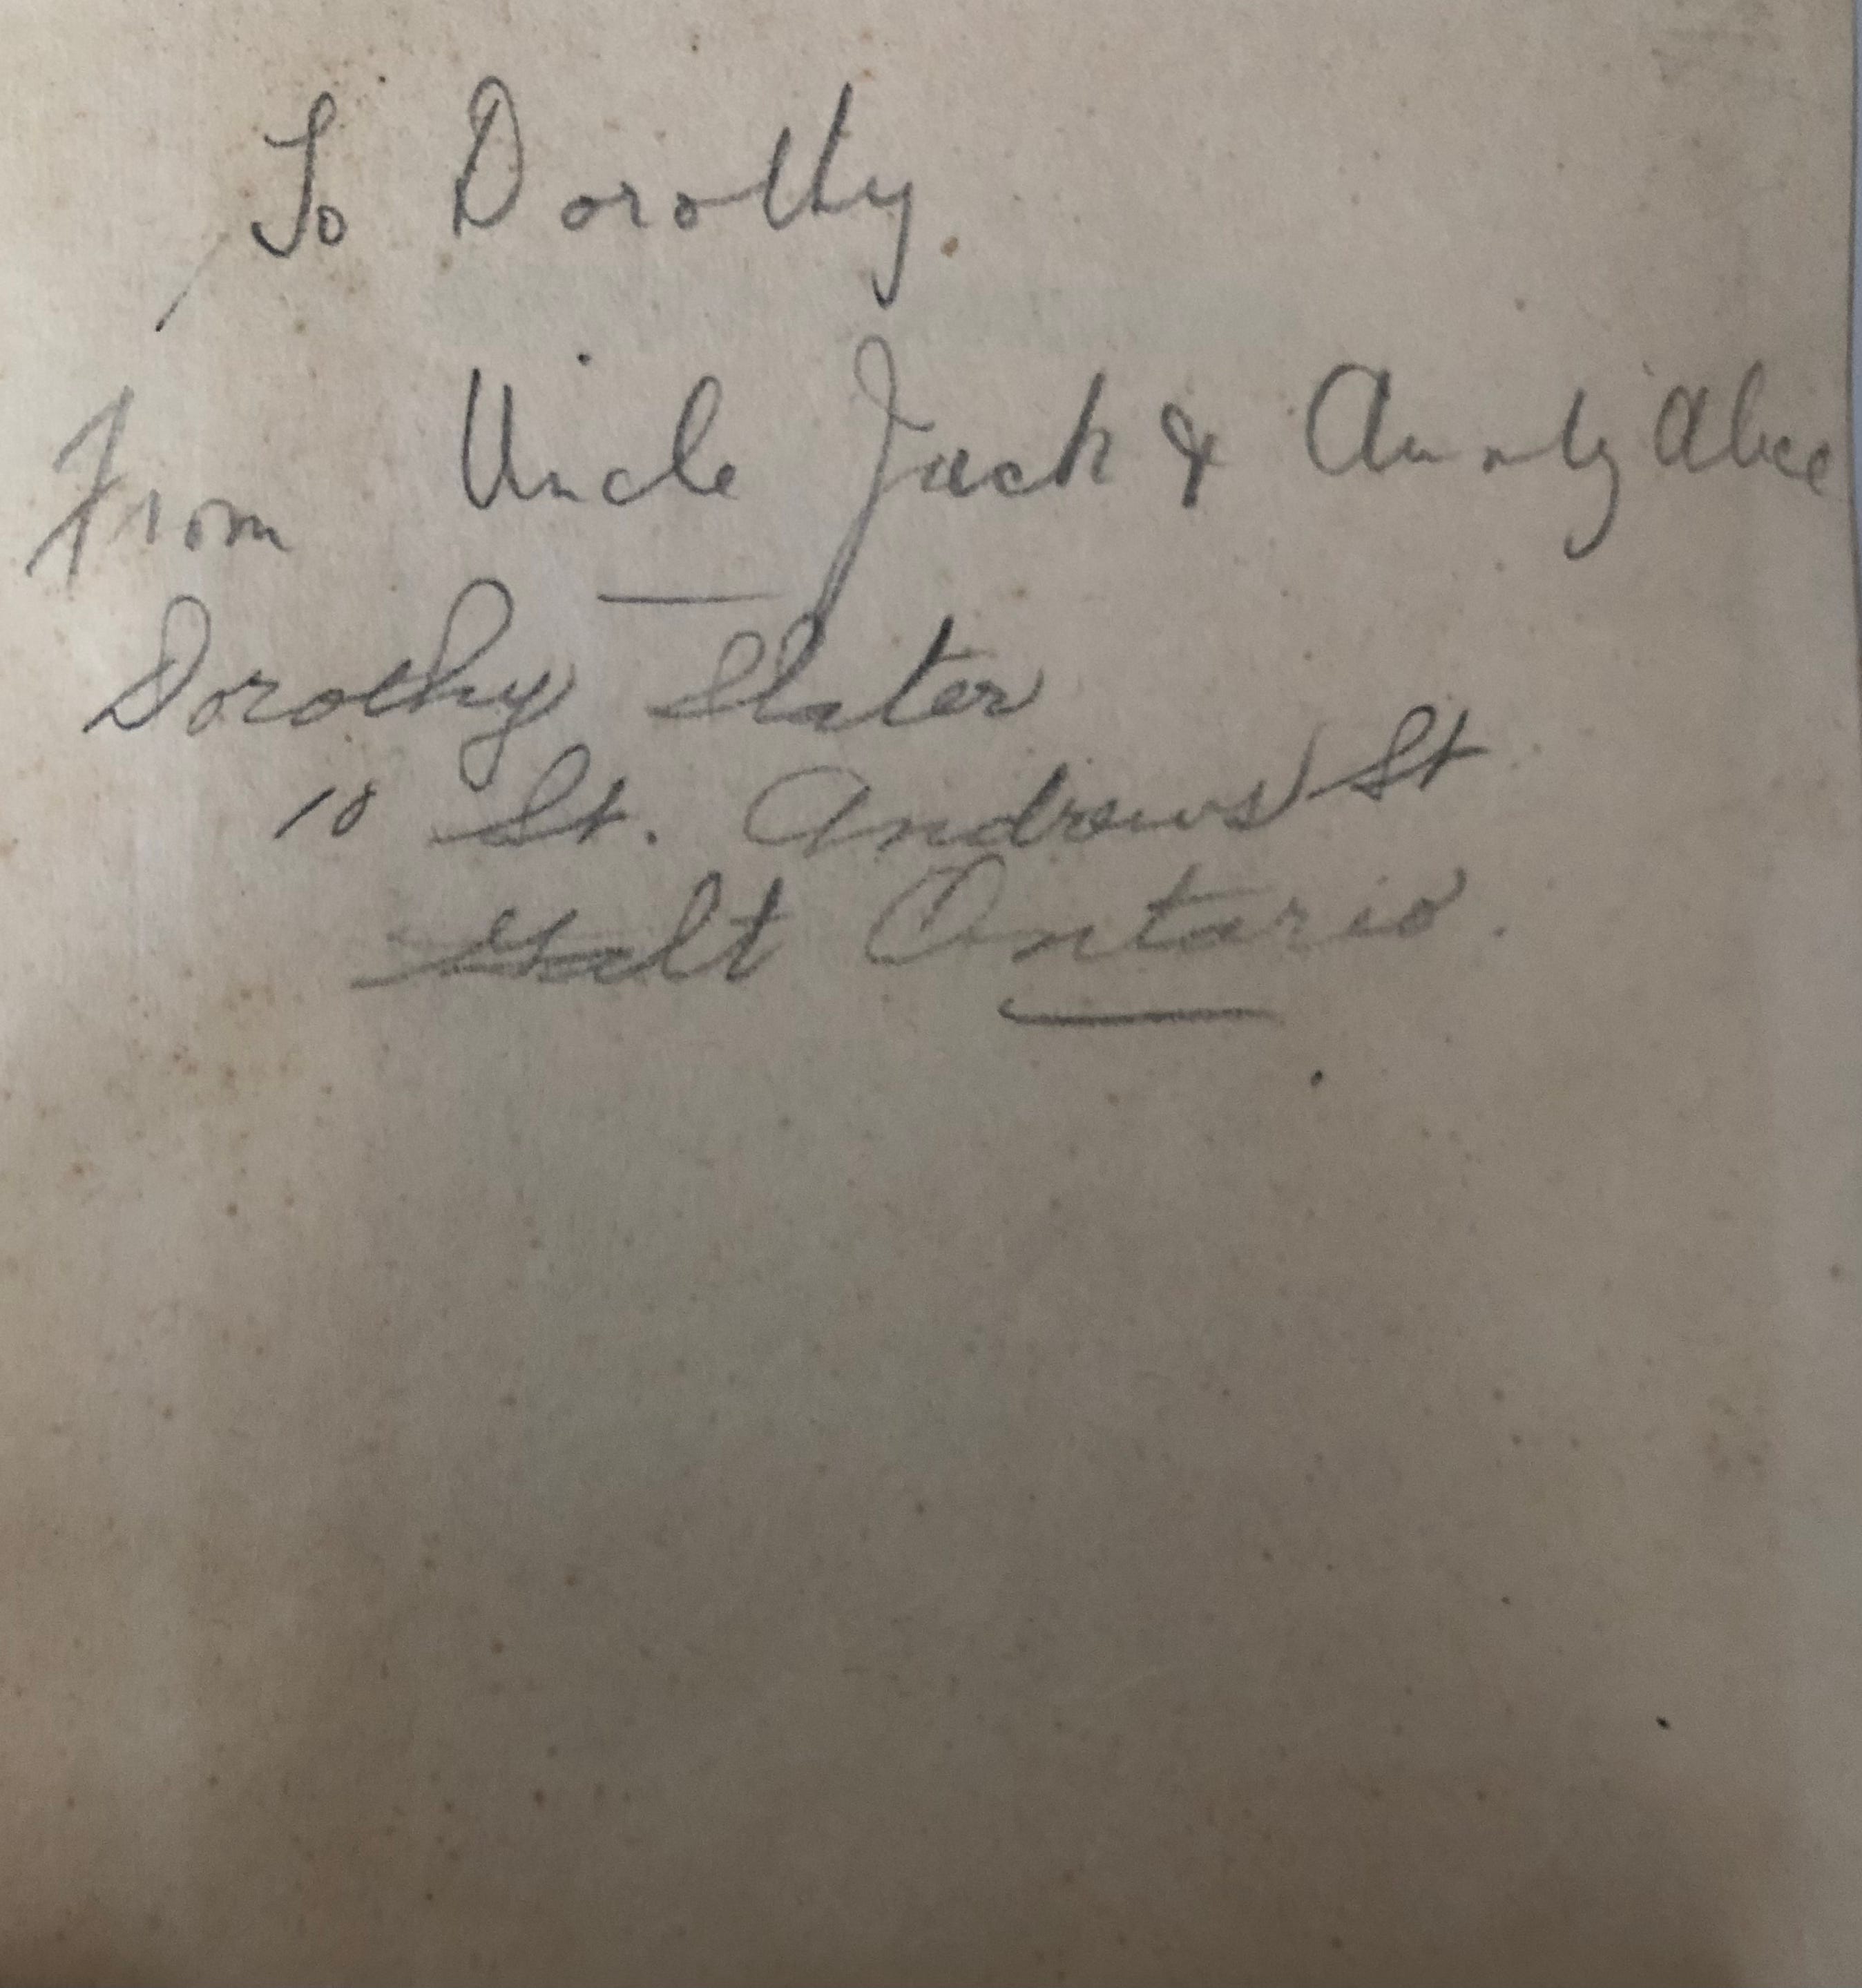 To Dorothy.
From Uncle Jack & Aunty Alice
Dorothy Slater
10 St. Andrews St
Galt Ontario.